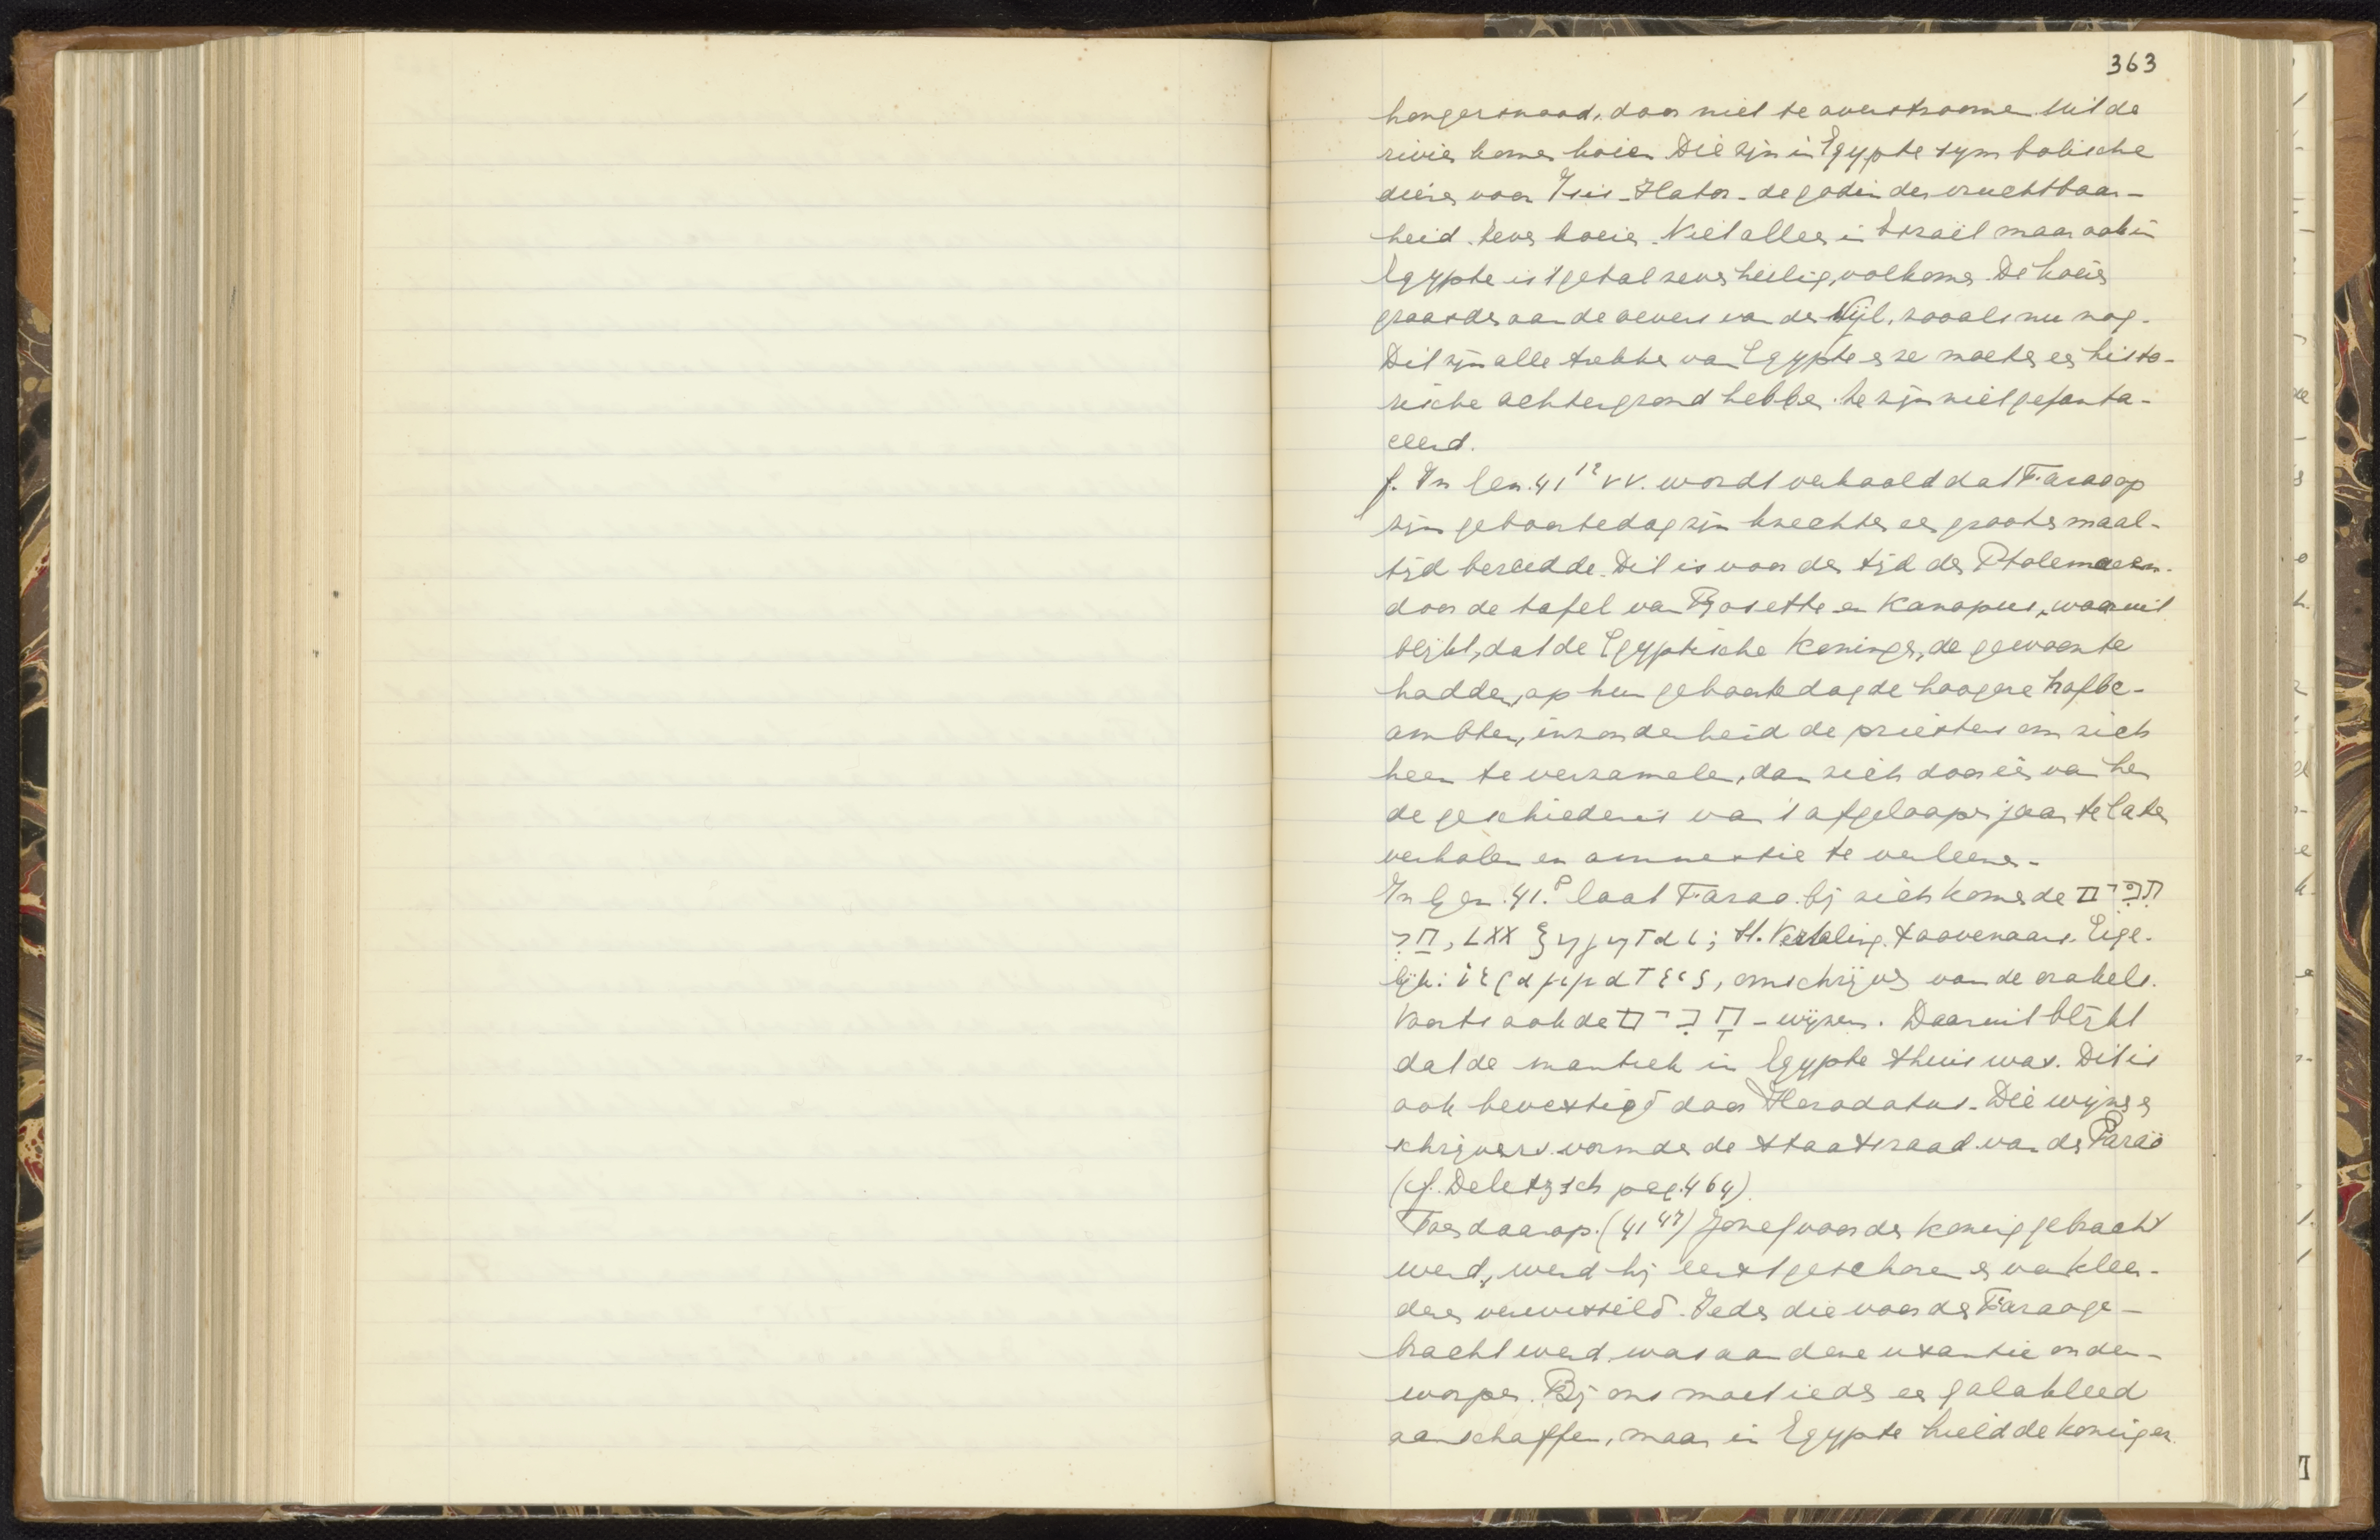 363
hongersnood, door niet te overstroomen. Uit de
rivier komen koeien. Die zijn in Egypte symbolische
dieren voor Isis-Hator - de godin der vruchtbaar-
heid. Zeven koeien. Niet alleen in Israël maar ook in
Egypte is 't getal zeven heilig, volkomen. De koeien
graasden aan de oevers van den Nijl, zooals nu nog.
Dit zijn alle trekken van Egypte en ze moeten een histo-
rische achtergrond hebben. Ze zijn niet gefanta-
eerd.
f. In Gen. 41¹² vv. wordt verhaald dat Farao op
zijn geboortedag zijn knechten een groote maal-
tijd bereidde. Dit is voor den tijd der Ptolemaeen
door de tafel van Rosette en Kanopus, waaruit
blijkt, dat de Egyptische Koningen, de gewoonte
hadden, op hun geboortedag de hoogere hofbe-
ambten, inzonderheid de priesters om zich
heen te verzamelen, dan zich door één van hen
de geschiedenis van 't afgeloopen jaar te laten
verhalen en amnestie te verleenen.
In Gen. 41.⁸ laat Farao bij zich komen de
LXX ἐξηγηταί; St. Vertaling. toovenaars. Eige-
lijk: ἱερογραμματεῖς, omschrijvers van de orakels.
Voorts ook de חכמים - wijzen. Daaruit blijkt
dat de mantiek in Egypte thuis was. Dit is
ook bevestigd door Herodotus. Die wijzen en
schrijvers vormden de staatsraad van den Farao
(cf. Delitzsch pag. 464).
Toen daarop (41⁴⁷) Jozef voor den koning gebracht
werd, werd hij eerst geschoren en van klee-
deren verwisseld. Ieder die voor den Farao ge-
bracht werd was aan deze usantie onder-
worpen. Bij ons moet ieder een galakleed
aanschaffen, maar in Egypte hield de koning er